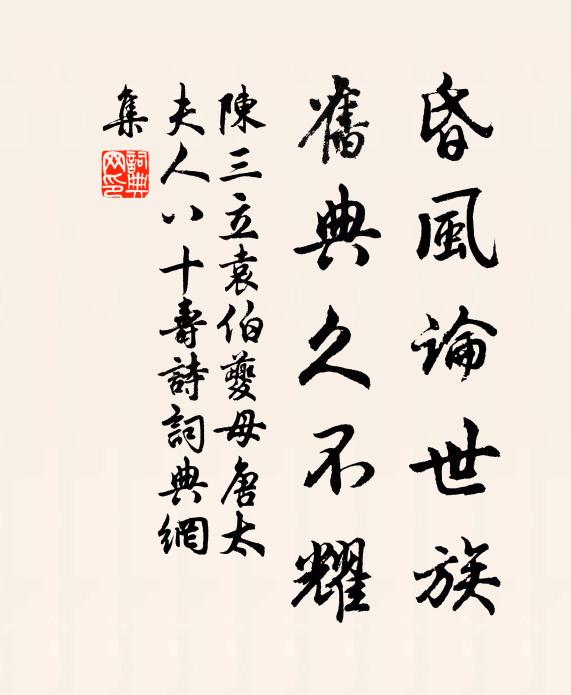 昏風論世族
舊典久不耀
陳三立袁伯夔母唐太
夫人八十壽詩詞典網
集
詞典網印